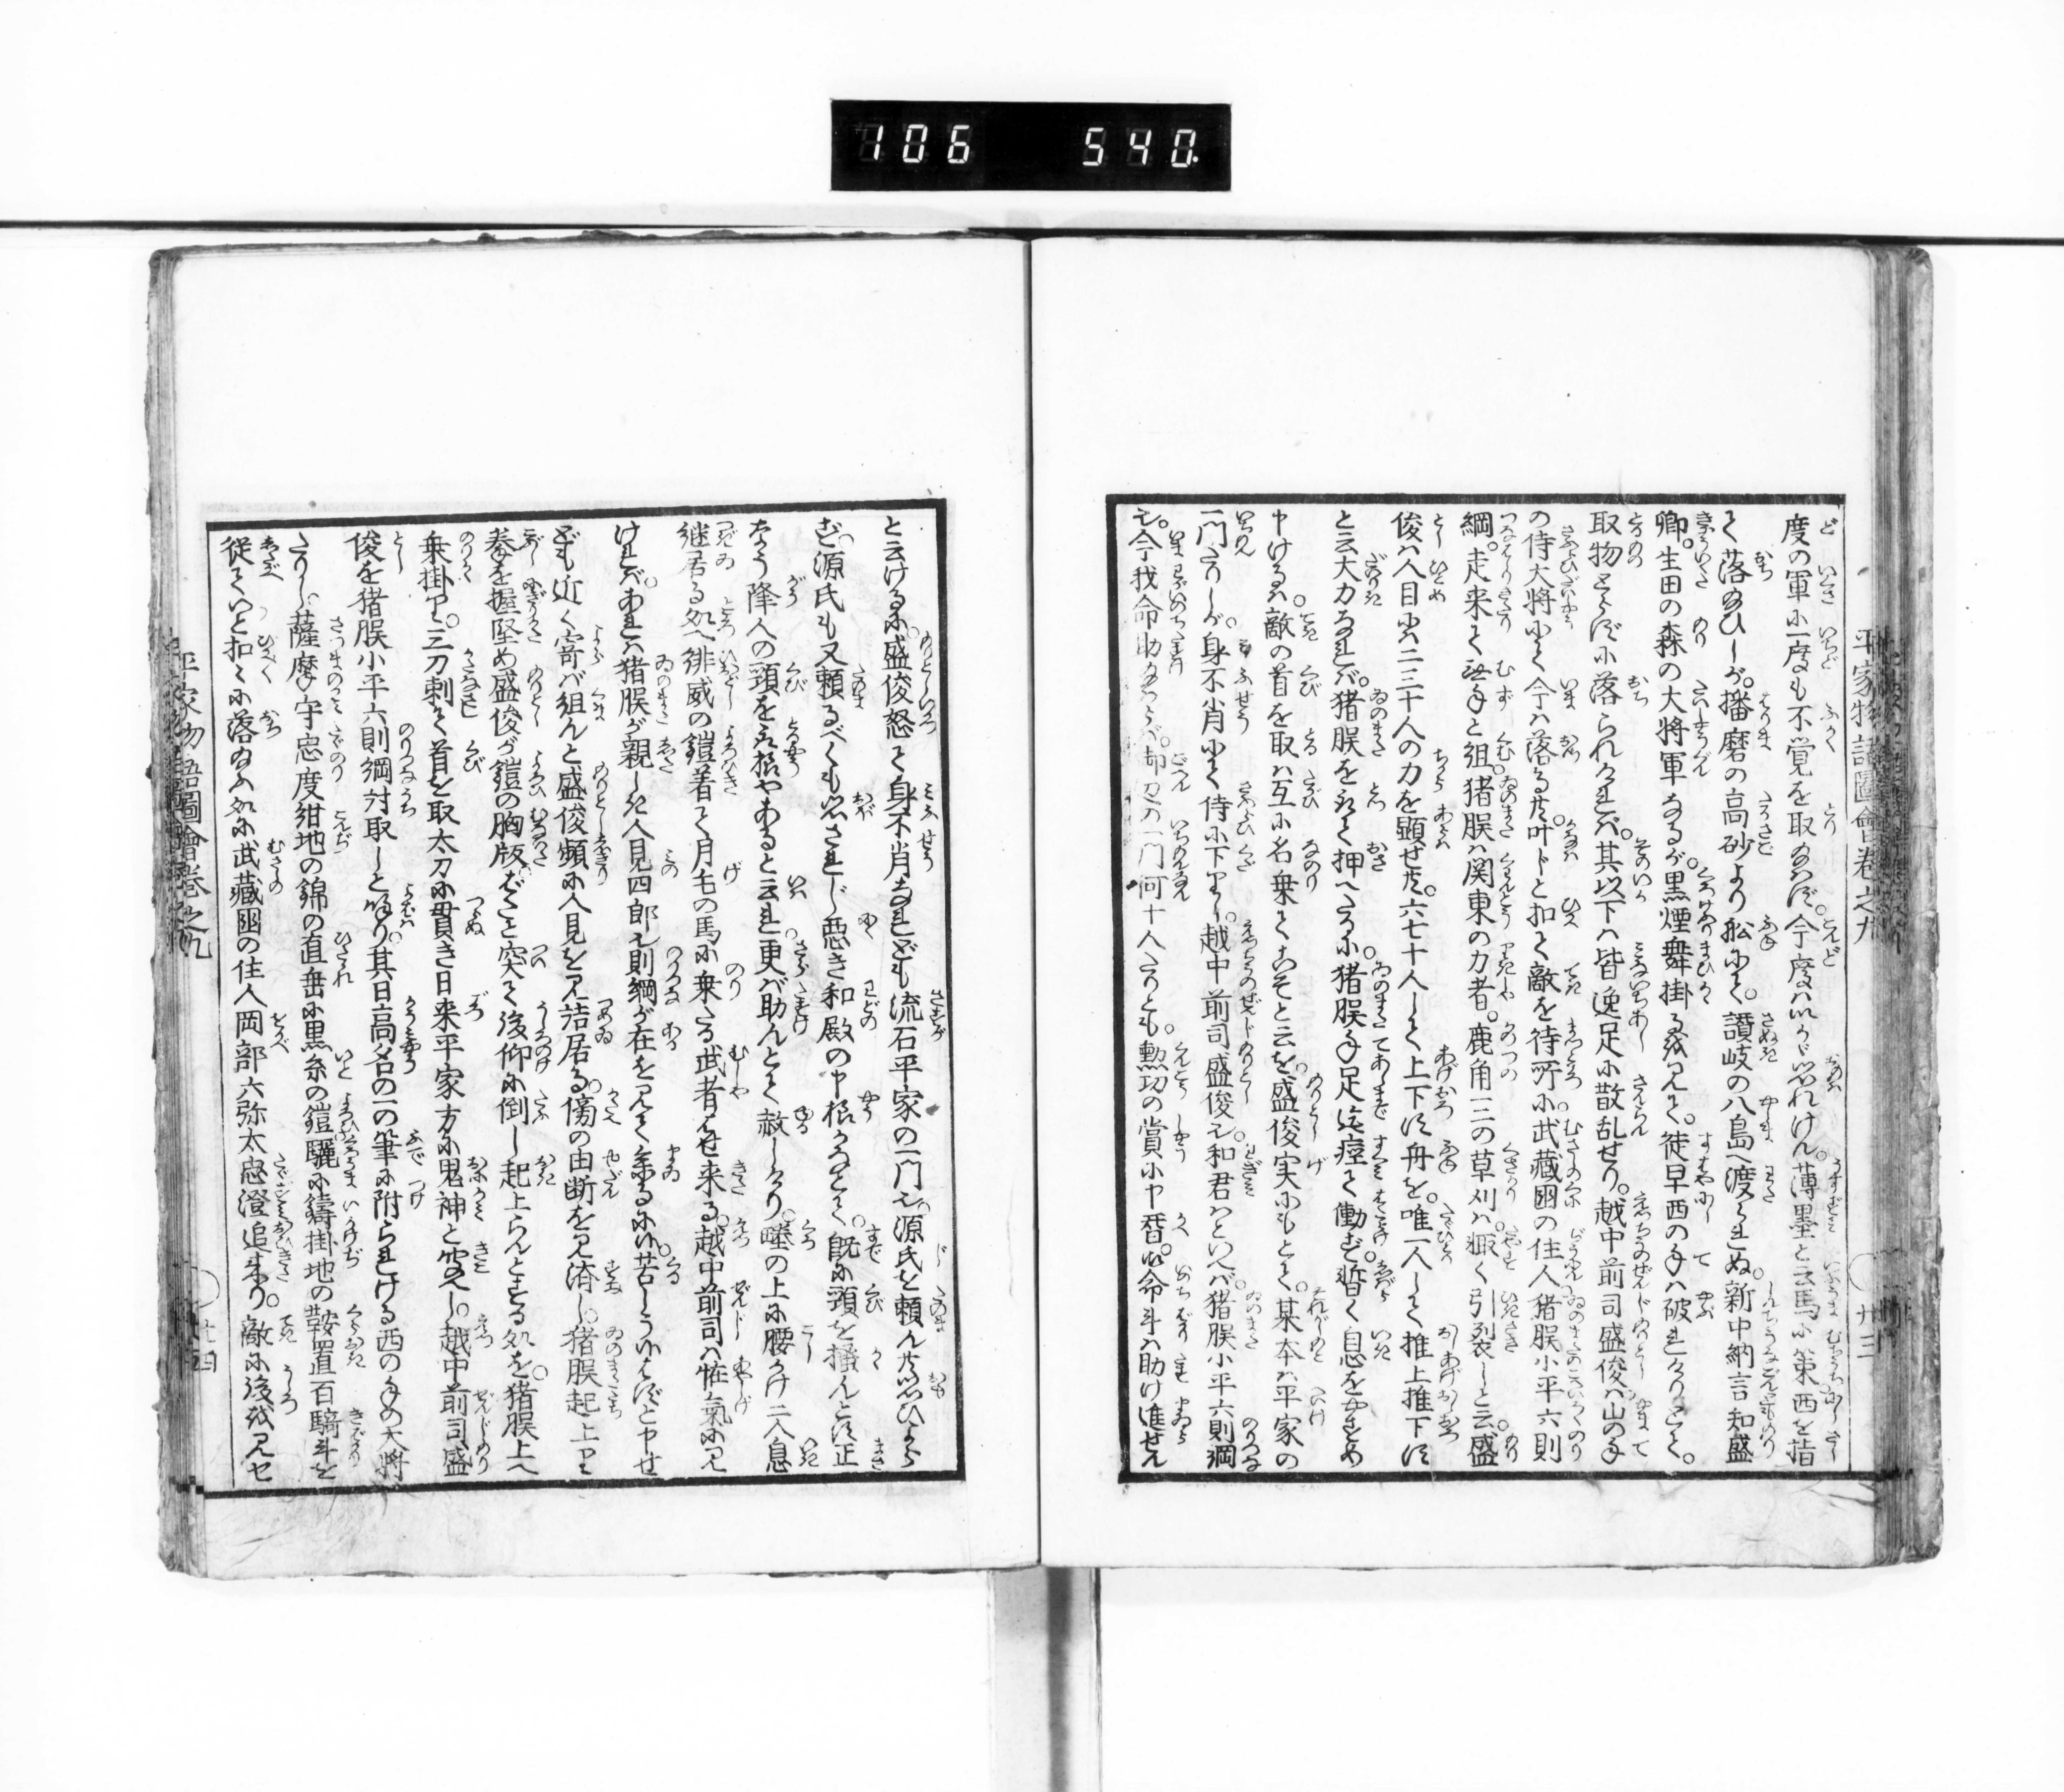 106 540.
平家物語圖會卷之九
廿三
度の軍に一度も不覚を取給はず。今度はいかゞ思れけん。薄墨と云馬に策西を指
て落給ひしが。播磨の高砂より船にて。讃岐の八島へ渡られぬ。新中納言知盛
卿。生田の森の大将軍なるが。黒煙舞掛るを見て。徒早西の手は破れけりとて。
取物とらずに落られければ。其以下は皆逸足に散乱せり。越中前司盛俊は山の手
の侍大将にて今は落る共叶じと扣て敵を待所に。武藏國の住人猪股小平六則
綱。走来て無手と組。猪股は関東の力者。鹿角一二の草刈は。輙く引裂しと云。盛
俊は人目には二三十人の力を顕せ共。六七十人して上下す舟を。唯一人して推上推下す
と云大力なれば。猪股を取て押へたるに。猪股手足迄痙て働ず。暫く息をやすめ
申けるは。敵の首を取は互に名乗てこそと云を。盛俊実にもとて。某本は平家の
一門たりしが。身不肖にて侍に下り。越中前司盛俊也。和君はといへば。猪股小平六則綱
也。今我命助たまはらば。御辺の一門何十人たりとも。勲功の賞に申替。命斗は助け進せん
と云けるに。盛俊怒て身不肖なれども流石平家の一門也。源氏を頼ん共思ひよら
ず。源氏も又頼るべくも思されじ。悪き和殿の申様かなとて。既に頭を掻んとす。正
なう降人の頭を取様やあると云れ。更ば助んとて赦しけり。畦の上に腰かけ二人息
継居る処へ。緋威の鎧着て月毛の馬に乗たる武者馳せ来る。越中前司は怪氣に見
ければ。あれは猪股が親しき人見四郎也。則綱が在を見て乗るに候。苦しう候はずと申せ
ども。近く寄ば組んと盛俊頻に人見を見詰居る。傍の由断を見済し。猪股起上り
拳を握堅め盛俊が鎧の胸版ばたと突て後仰に倒し。起上らんとする処を。猪股上へ
乗掛り。三刀刺て首を取太刀に貫き日来平家方に鬼神と聞へし。越中前司盛
俊を猪股小平六則綱討取しと呼り。其日高名の一の筆に附られける西の手の大将
たりし。薩摩守忠度紺地の錦の直垂に黒糸の鎧驪に鑄掛地の鞍置百騎斗を
従ていと扣くに落給ふ処に武藏國の住人岡部六弥太忠澄追来り。敵に後を見せ
平家物語圖會卷之九
廿四